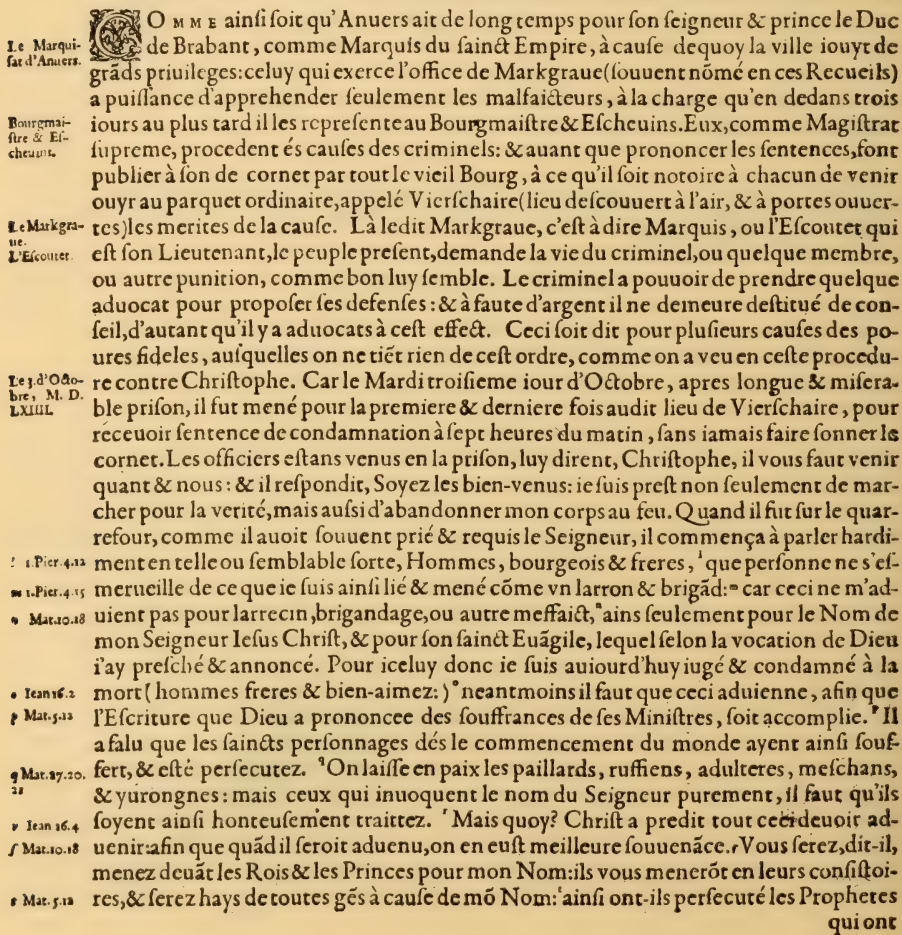 COMME ainſi ſoit qu'Anuers ait de long temps pour ſon ſeigneur & prince le Duc
Le Marqui-
ſat d'Anuers.
de Brabant, comme Marquis du ſainct Empire, à cauſe dequoy la ville iouyt de
grãds priuileges: celuy qui exerce l'office de Markgraue (ſouuent nõmé en ces Recueils)
a puiſſance d'apprehender ſeulement les malfaicteurs, à la charge qu'en dedans trois
Bourgmai-
ſtre & Eſ-
cheuins.
iours au plus tard il les repreſente au Bourgmaiſtre & Eſcheuins. Eux, comme Magiſtrat
ſupreme, procedent és cauſes des criminels: & auant que prononcer les ſentences, font
publier à ſon de cornet par tout le vieil Bourg, à ce qu'il ſoit notoire à chacun de venir
ouyr au parquet ordinaire, appelé Vierſchaire (lieu deſcouuert à l'air, & à portes ouuer-
Le Markgra-
ue.
L'Eſcoutet.
tes) les merites de la cauſe. Là ledit Markgraue, c'eſt à dire Marquis, ou l'Eſcoutet qui
eſt ſon Lieutenant, le peuple preſent, demande la vie du criminel, ou quelque membre,
ou autre punition, comme bon luy ſemble. Le criminel a pouuoir de prendre quelque
aduocat pour propoſer ſes defenſes: & à faute d'argent il ne demeure deſtitué de con-
ſeil, d'autant qu'il y a aduocats à ceſt effect. Ceci ſoit dit pour pluſieurs cauſes des po-
ures fideles, auſquelles on ne tiẽt rien de ceſt ordre, comme on a veu en ceſte procedu-
Le 3. d'Octo-
bre, M. D.
LXIIII.
re contre Chriſtophe. Car le Mardi troiſieme iour d'Octobre, apres longue & miſera-
ble priſon, il fut mené pour la premiere & derniere fois audit lieu de Vierſchaire, pour
receuoir ſentence de condamnation à ſept heures du matin, ſans iamais faire ſonner le
cornet. Les officiers eſtans venus en la priſon, luy dirent, Chriſtophe, il vous faut venir
quant & nous: & il reſpondit, Soyez les bien-venus: ie ſuis preſt non ſeulement de mar-
cher pour la verité, mais auſsi d'abandonner mon corps au feu. Quand il fut ſur le quar-
refour, comme il auoit ſouuent prié & requis le Seigneur, il commença à parler hardi-
l 1.Pier.4.12
ment en telle ou ſemblable ſorte, Hommes, bourgeois & freres, l que perſonne ne s'eſ-
m 1.Pier.4.15
merueille de ce que ie ſuis ainſi lié & mené cõme vn larron & brigãd: m car ceci ne m'ad-
n Mat.10.18
uient pas pour larrecin, brigandage, ou autre meffaict, n ains ſeulement pour le Nom de
mon Seigneur Ieſus Chriſt, & pour ſon ſainct Euãgile, lequel ſelon la vocation de Dieu
i'ay preſché & annoncé. Pour iceluy donc ie ſuis auiourd'huy iugé & condamné à la
o Iean 16.2
mort (hommes freres & bien-aimez:) o neantmoins il faut que ceci aduienne, afin que
p Mat.5.12
l'Eſcriture que Dieu a prononcee des ſouffrances de ſes Miniſtres, ſoit accomplie. p Il
a falu que les ſaincts perſonnages dés le commencement du monde ayent ainſi ſouf-
q Mat.27.20.
21
fert, & eſté perſecutez. q On laiſſe en paix les paillards, ruffiens, adulteres, meſchans,
& yurongnes: mais ceux qui inuoquent le nom du Seigneur purement, il faut qu'ils
r Iean 16.4
ſoyent ainſi honteuſement traittez. r Mais quoy? Chriſt a predit tout ceci deuoir ad-
ſ Mat.10.18
uenir: afin que quãd il ſeroit aduenu, on en euſt meilleure ſouuenãce. ſ Vous ſerez, dit-il,
menez deuãt les Rois & les Princes pour mon Nom: ils vous menerõt en leurs conſiſtoi-
t Mat.5.12
res, & ſerez hays de toutes gẽs à cauſe de mõ Nom: t ainſi ont-ils perſecuté les Prophetes
qui ont